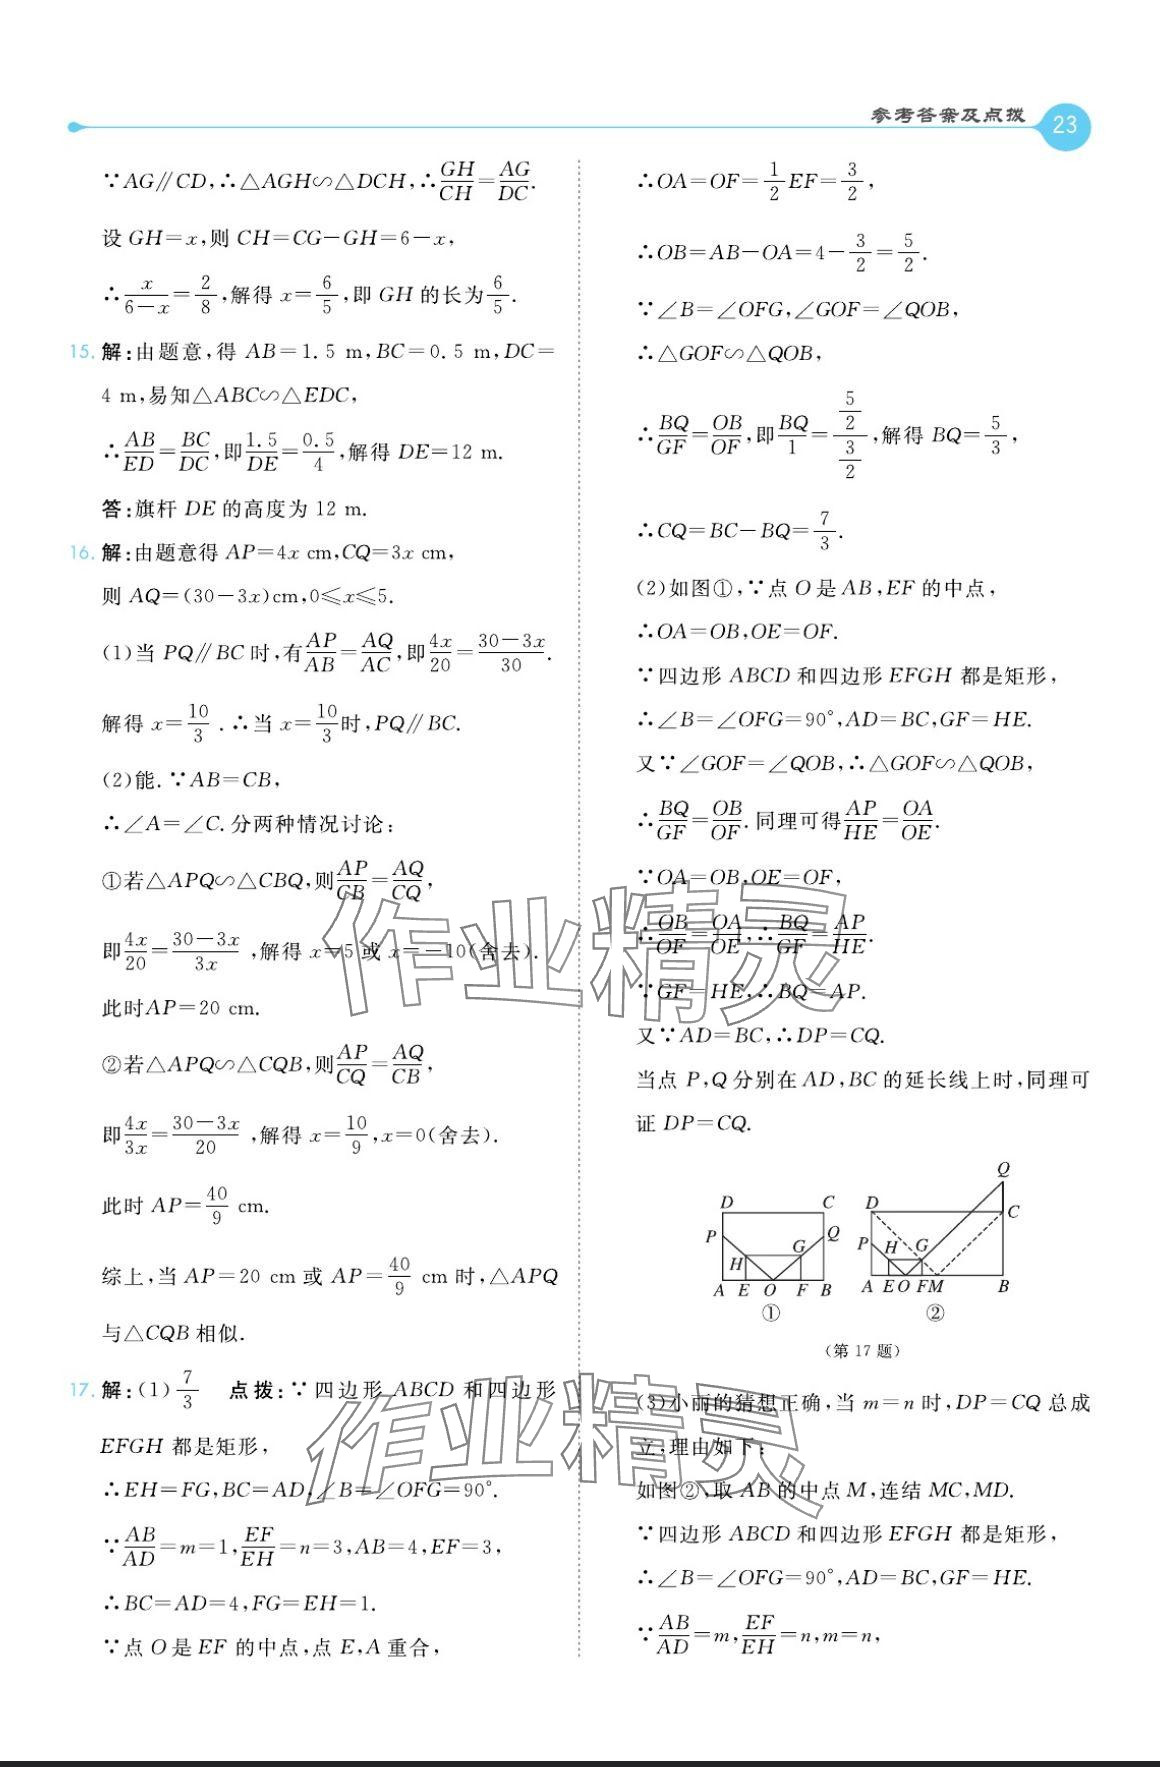 参考答案及点拨
23
∵AG∥CD,∴△AGH∽△DCH,∴GH/CH=AG/DC.
设 GH=x,则 CH=CG-GH=6-x,
∴x/(6-x)=2/8,解得 x=6/5,即 GH 的长为6/5.
15. 解:由题意,得 AB=1.5 m,BC=0.5 m,DC=
4 m,易知△ABC∽△EDC,
∴AB/ED=BC/DC,即1.5/DE=0.5/4,解得 DE=12 m.
答:旗杆 DE 的高度为 12 m.
16. 解:由题意得 AP=4x cm,CQ=3x cm,
则 AQ=(30-3x)cm,0≤x≤5.
(1)当 PQ∥BC 时,有AP/AB=AQ/AC,即4x/20=(30-3x)/30.
解得 x=10/3.∴当 x=10/3时,PQ∥BC.
(2)能.∵AB=CB,
∴∠A=∠C.分两种情况讨论:
①若△APQ∽△CBQ,则AP/CB=AQ/CQ,
即4x/20=(30-3x)/3x,解得 x=5 或 x=-10(舍去).
此时AP=20 cm.
②若△APQ∽△CQB,则AP/CQ=AQ/CB,
即4x/3x=(30-3x)/20,解得 x=10/9,x=0(舍去).
此时 AP=40/9 cm.
综上,当 AP=20 cm 或 AP=40/9 cm 时,△APQ
与△CQB 相似.
17. 解:(1)7/3 点拨:∵四边形 ABCD 和四边形
EFGH 都是矩形,
∴EH=FG,BC=AD,∠B=∠OFG=90°.
∵AB/AD=m=1,EF/EH=n=3,AB=4,EF=3,
∴BC=AD=4,FG=EH=1.
∵点 O 是 EF 的中点,点 E,A 重合,
∴OA=OF=1/2EF=3/2,
∴OB=AB-OA=4-3/2=5/2.
∵∠B=∠OFG,∠GOF=∠QOB,
∴△GOF∽△QOB,
∴BQ/GF=OB/OF,即BQ/1=(5/2)/(3/2),解得 BQ=5/3,
∴CQ=BC-BQ=7/3.
(2)如图①,∵点 O 是 AB,EF 的中点,
∴OA=OB,OE=OF.
∵四边形 ABCD 和四边形 EFGH 都是矩形,
∴∠B=∠OFG=90°,AD=BC,GF=HE.
又∵∠GOF=∠QOB,∴△GOF∽△QOB,
∴BQ/GF=OB/OF.同理可得AP/HE=OA/OE.
∵OA=OB,OE=OF,
∴OB/OF=OA/OE,∴BQ/GF=AP/HE.
∵GF=HE,∴BQ=AP.
又∵AD=BC,∴DP=CQ.
当点 P,Q 分别在 AD,BC 的延长线上时,同理可
证 DP=CQ.
D C P Q H G A E O F B
①
Q D C P H G A E O F M B
②
(第 17 题)
(3)小丽的猜想正确,当 m=n 时,DP=CQ 总成
立,理由如下:
如图②,取 AB 的中点 M,连结 MC,MD.
∵四边形 ABCD 和四边形 EFGH 都是矩形,
∴∠B=∠OFG=90°,AD=BC,GF=HE.
∵AB/AD=m,EF/EH=n,m=n,
作业精灵
作业精灵